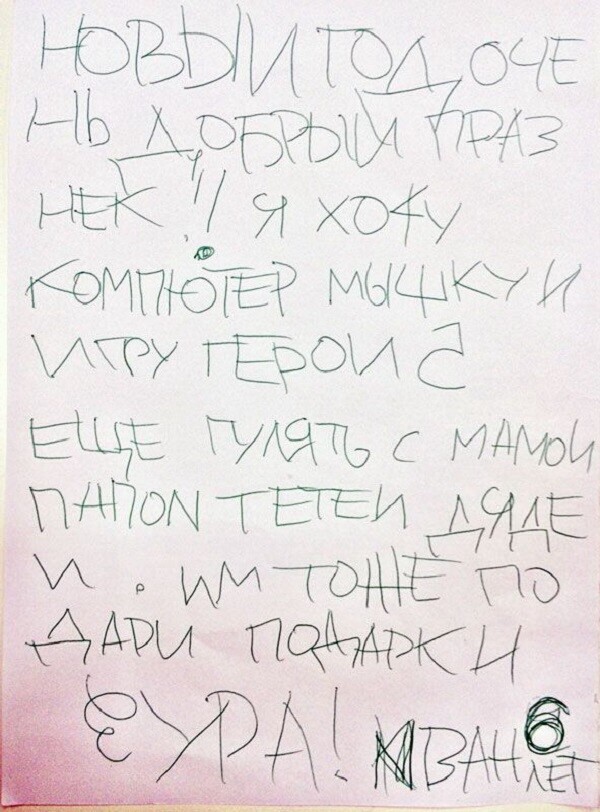 НОВЫЙ ГОД ОЧЕ
НЬ ДОБРЫЙ ПРАЗ
НЕК!! Я ХОЧУ
КОМПЮТЕР МЫШКУ И
ИГРУ ГЕРОИ 5
ЕЩЕ ГУЛЯТЬ С МАМОЙ
ПАПОЙ ТЕТЕЙ ДЯДЕ
Й. ИМ ТОЖЕ ПО
ДАРИ ПОДАРКИ
УРА! ИВАН 6
ЛЕТ